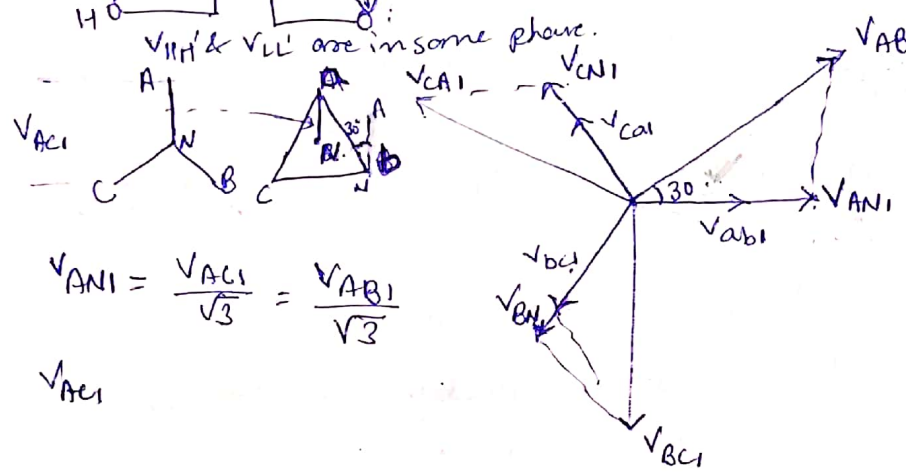 H
V_HH' & V_LL' are in same phase.
A
N
C
B
V_AC1
A
30°
A
C
N
V_CA1
V_CN1
V_ca1
V_AB
30°
V_AN1
V_ab1
V_bc1
V_BN1
V_BC1
V_AN1 = V_AC1/√3 = V_AB1/√3
V_AC1